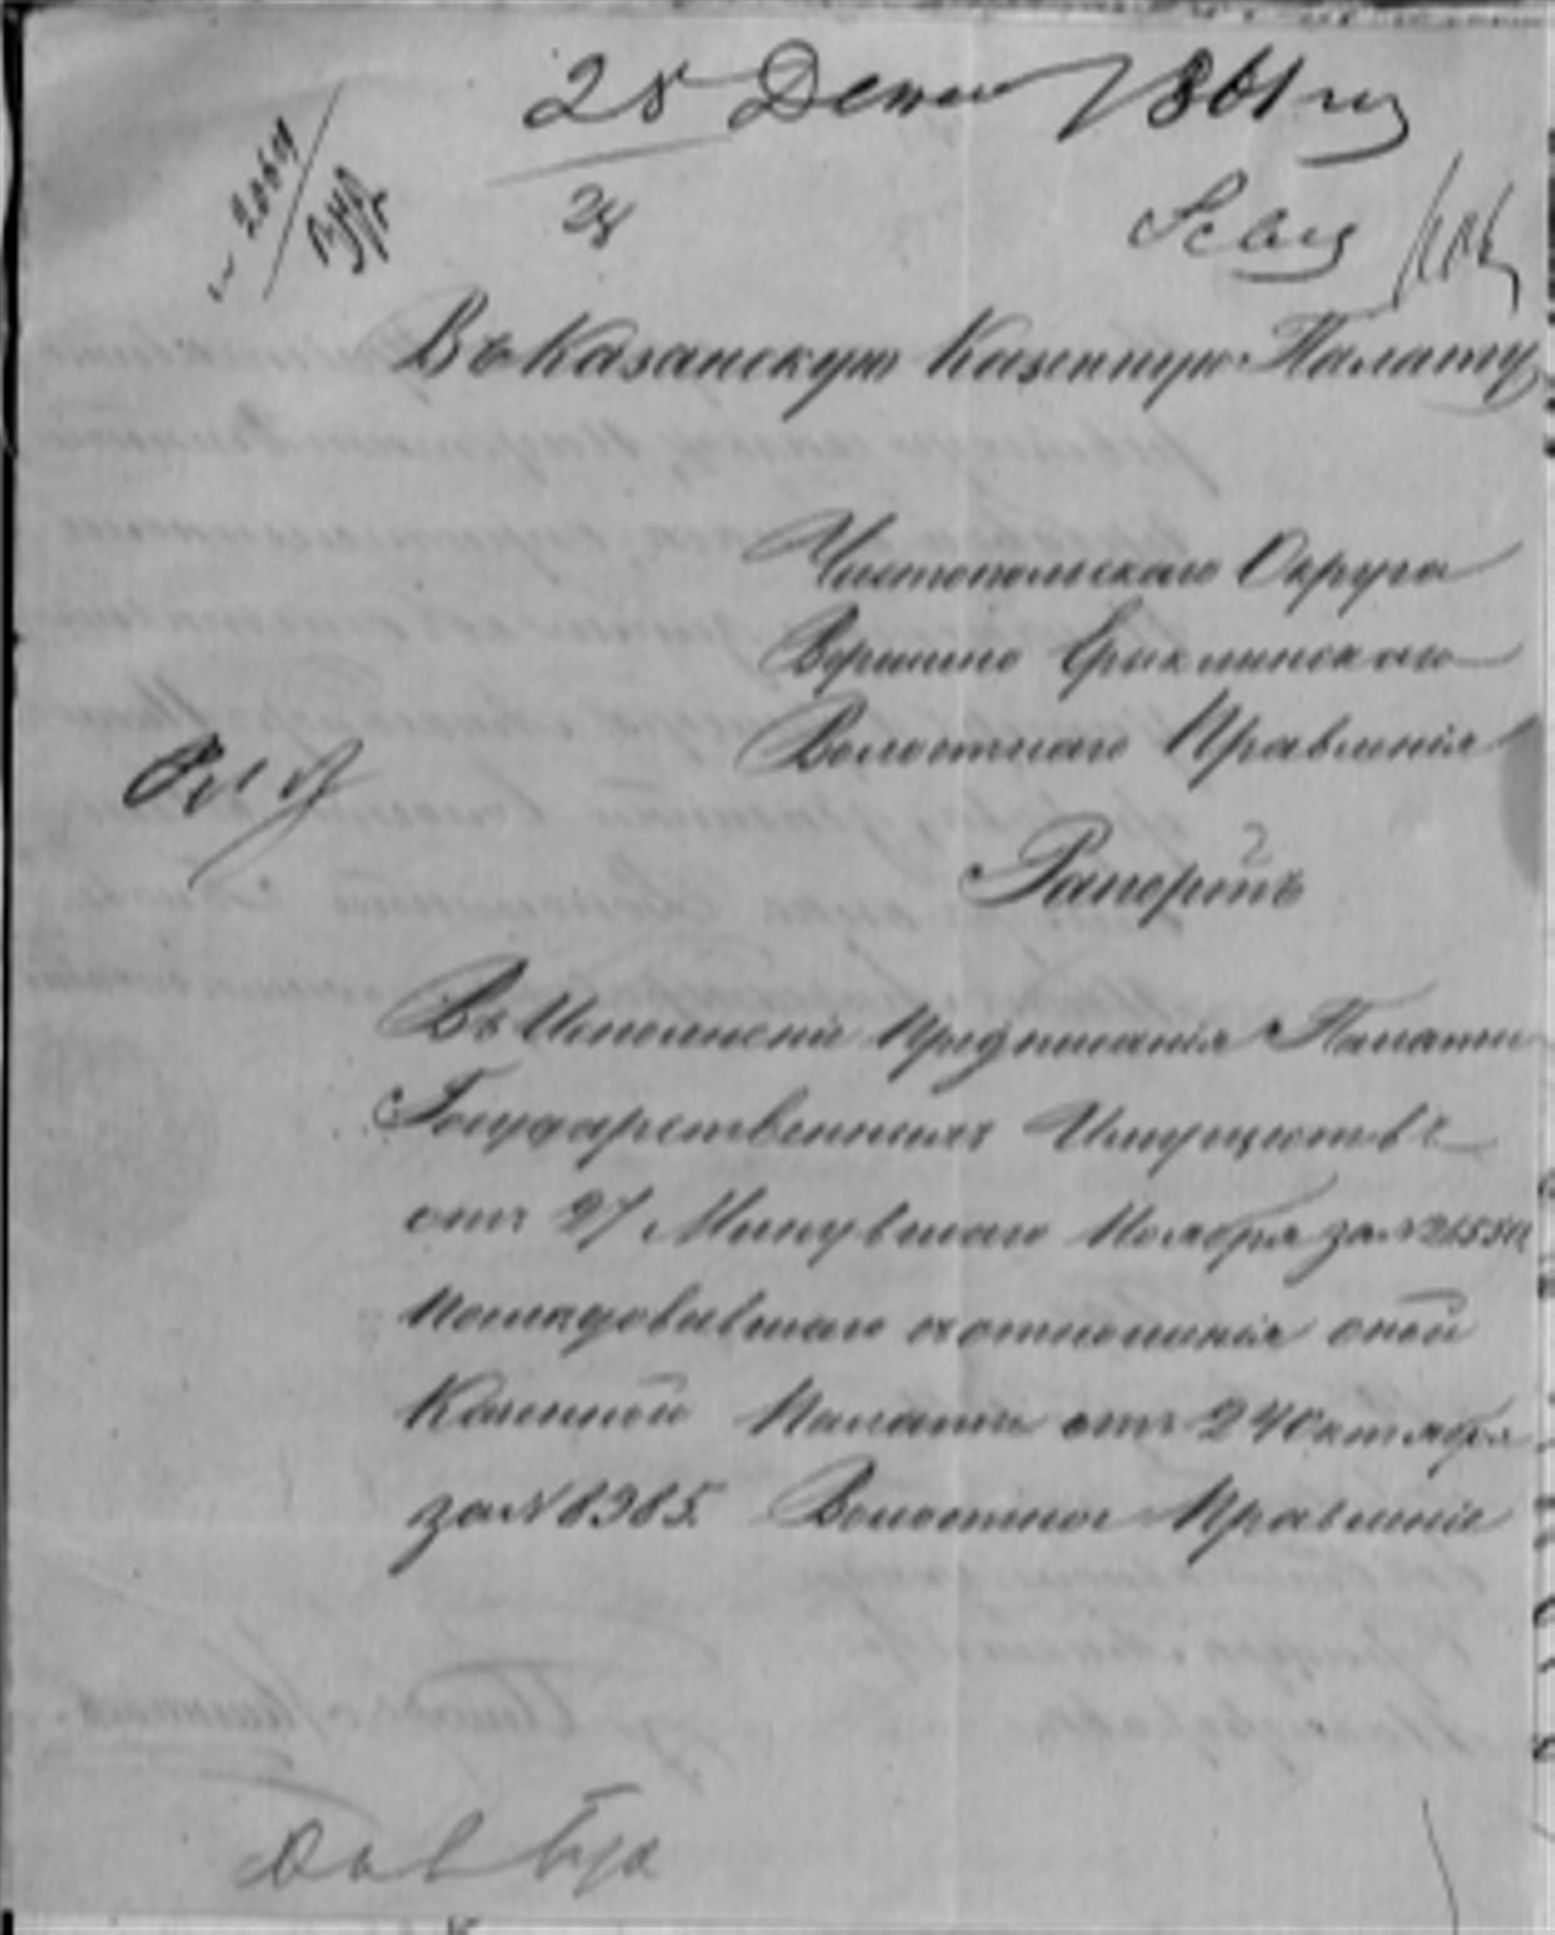 28 Декаб 1861 г
28
Въ Казанскую Казенную Палату
Чистопольскаго Округа
Вершино Ериклинскаго
Волостнаго Правленія
Рапортъ
Въ Исполненіи Предписанія Палаты
Государственныхъ Имуществъ
отъ 27 Минувшаго Ноября за №
Последовавшаго отношенія оной
Казенной Палаты отъ 24 Октября
за № 8385. Волостное Правленіе